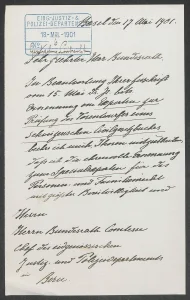 EIDG. JUSTIZ- &
POLIZEI-DEPARTEMENT
18 MAI. 1901
Basel den 17 Mai 1901.
Sehr geehrter Herr Bundesrath
In Beantwortung Ihrer Zuschrift
vom 15 Mai d. J. betr.
Ernennung von Experten zur
Prüfung des Vorentwurfes eines
Schweizerischen Civilgesetzbuches
beehre ich mich Ihnen mitzutheilen
dass ich die ehrenvolle Ernennung
zum Spezialexperten für das
Personen- und Familienrecht
mit
Herrn
Herrn Bundesrath Comtesse
Chef des eidgenössischen
Justiz- und Polizeidepartements
Bern